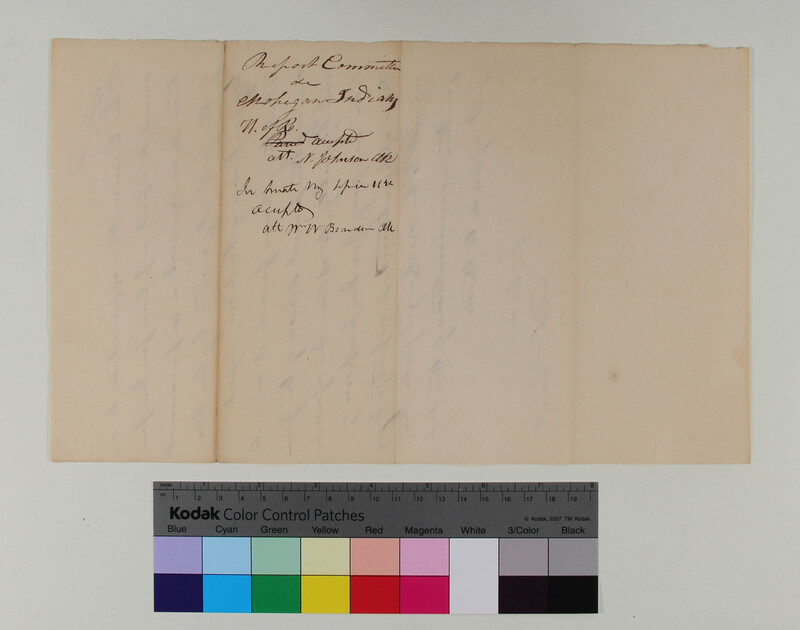 Report Committee
on
Mohegan Indians
H. of R.
Passed accepted
att. N. Johnson Clk
In Senate
accepted
att Wm W Clk
inches 1 2 3 4 5 6 7 8
cm 1 2 3 4 5 6 7 8 9 10 11 12 13 14 15 16 17 18 19
Kodak Color Control Patches
© Kodak, 2007 TM: Kodak
Blue Cyan Green Yellow Red Magenta White 3/Color Black